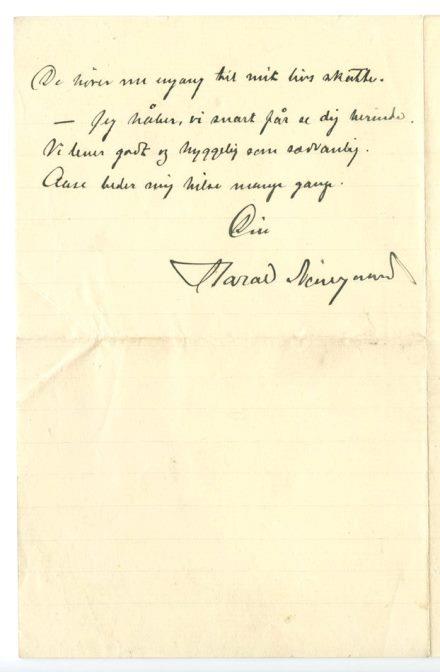 De hører nu engang til mit livs skatte.
— Jeg håber, vi snart får se dig herinde.
Vi lever godt og hyggelig som sædvanlig.
Aase beder mig hilse mange gange.
Din
Harald